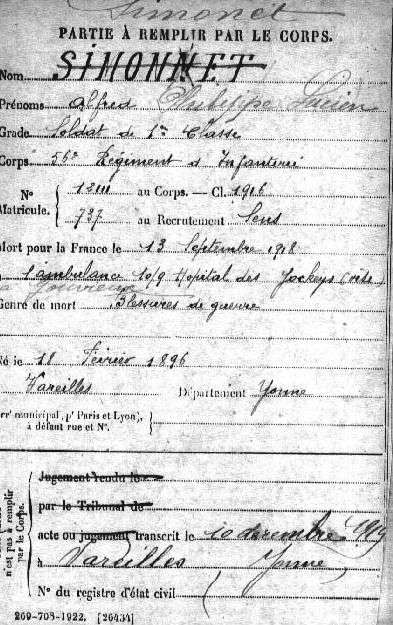 Simonet
PARTIE À REMPLIR PAR LE CORPS.
Nom SIMONNET
Prénoms Alfred Philippe Lucien
Grade Soldat de 1re Classe
Corps 56e Régiment d'Infanterie
No Matricule. { 12111 au Corps. — Cl. 1916
737 au Recrutement Sens
Mort pour la France le 13 Septembre 1918
l'ambulance 10/9 Hôpital des Jockeys (Oise
à Gouvieux
Genre de mort Blessures de guerre
Né le 18 Février 1896
Vareilles Département Yonne
arrt municipal, pr Paris et Lyon),
à défaut rue et No.
Jugement rendu le
par le Tribunal de
acte ou jugement transcrit le 10 décembre 1919
à Vareilles Yonne
No du registre d'état civil
n'est pas à remplir
par le Corps.
269-708-1922. [26434]